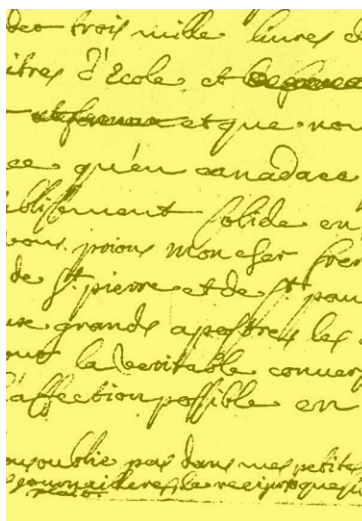 des trois mille livres d
itres d'Ecole et
et que nou
ce qu'en canada ce
ablissement solide en
vous prions mon cher frere
de St pierre et de St pau
ux grands apostres les
la veritable conver
l'affection possible en
oublie pas dans mes petites
la reciproque
plait